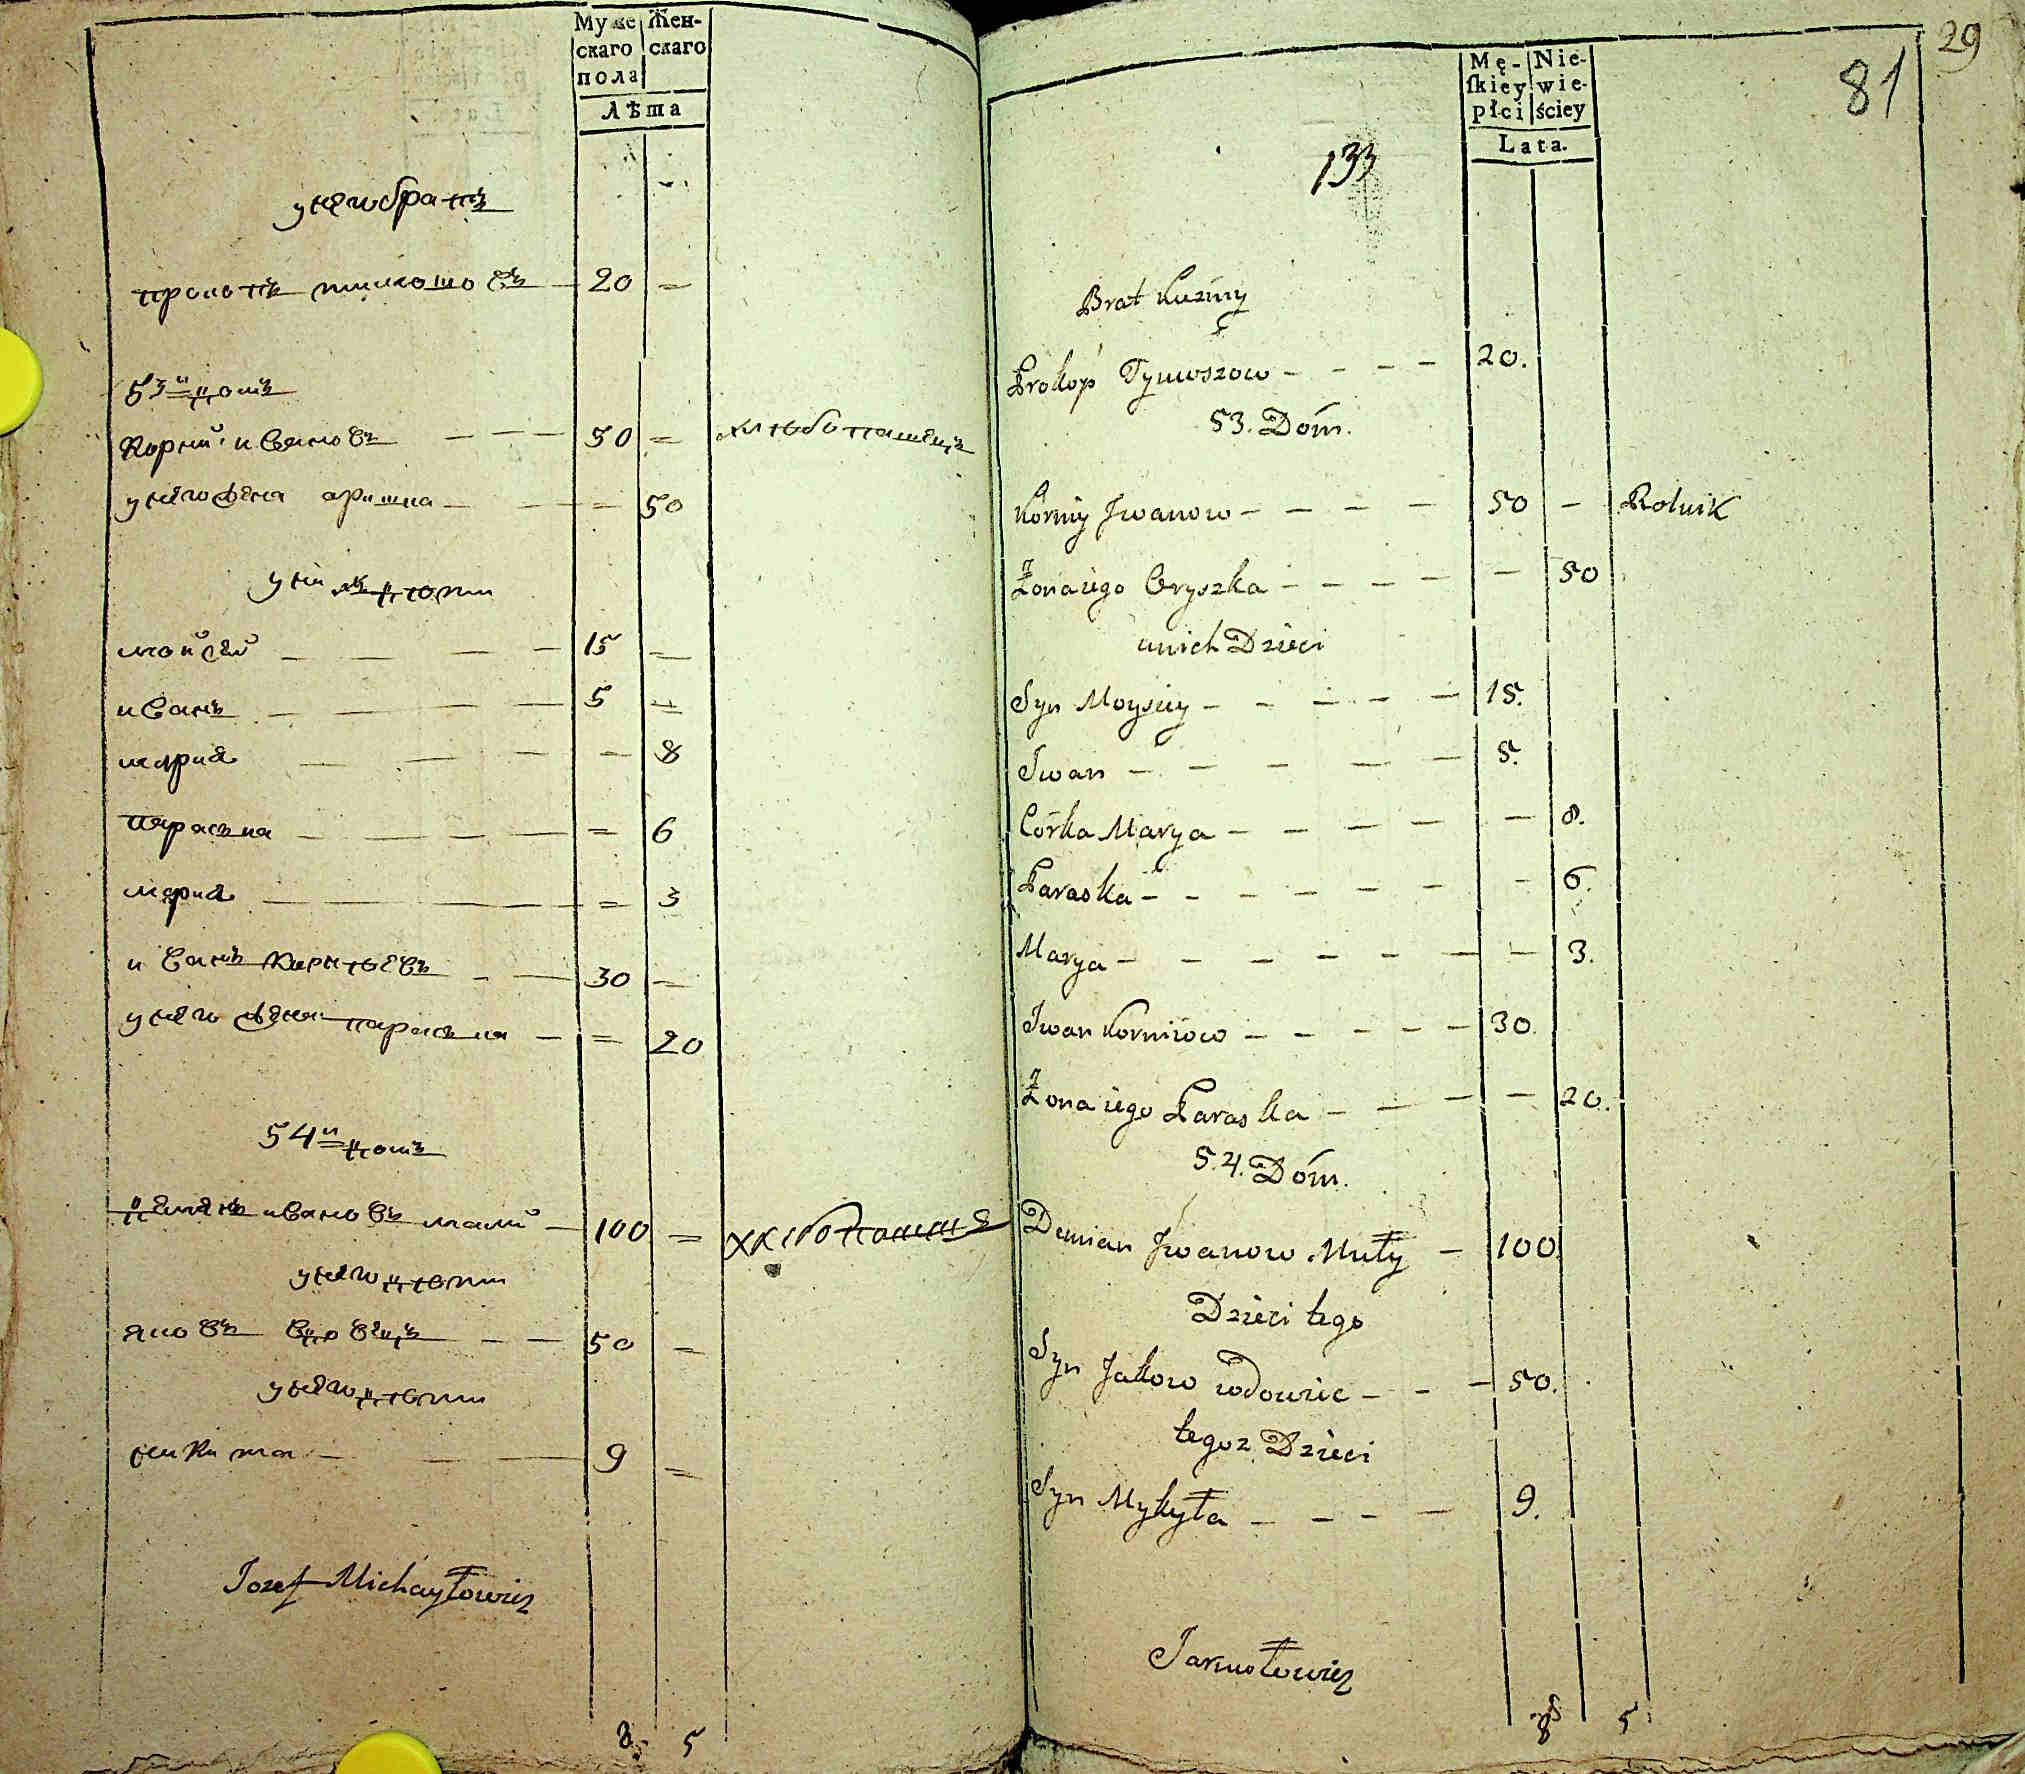 Муже Жен-
скаго скаго
пола
Лѣта
у него братъ
прокопъ тимошовъ 20 =
53й домъ
Корнiй ивановъ — — — 50 = хлебопашецъ
у него жена оришка — — = 50
у них дѣти
мойсей — — — — 15 =
иванъ — — — — 5 =
мария — — — — 8
параска — — — — = 6
мария — — — — = 3
иванъ корнѣевъ — — 30 =
у него жена параска — = 20
54й домъ
демянъ ивановъ малий — 100 = хлебопашец
у него дѣти
яковъ вдовецъ — — 50 =
у него дѣти
никита — — — 9 =
Jozef Michayłowicz
8 5
29
81
Mę- Nie-
skiey wie-
płci ściey
Lata.
133
Brat Kuźmy
Prokop Tymoszow - - - - 20.
53. Dóm.
Korniy Jwanow - - - - 50 - Rolnik
Żona iego Oryszka - - - - - 50
u nich Dzieci
Syn Moysiey - - - - - 15.
Jwan - - - - - 5.
Córka Marya - - - - - 8.
Paraska - - - - - - - 6.
Marya - - - - - - - - 3.
Jwan Korniow - - - - - 30.
Żona iego Paraska - - - - 20.
54. Dóm.
Demian Jwanow Mały - 100.
Dzieci tego
Syn Jakow wdowiec - - - 50.
tegoz Dzieci
Syn Mykyta - - - - 9.
Jarmołowicz
8 5